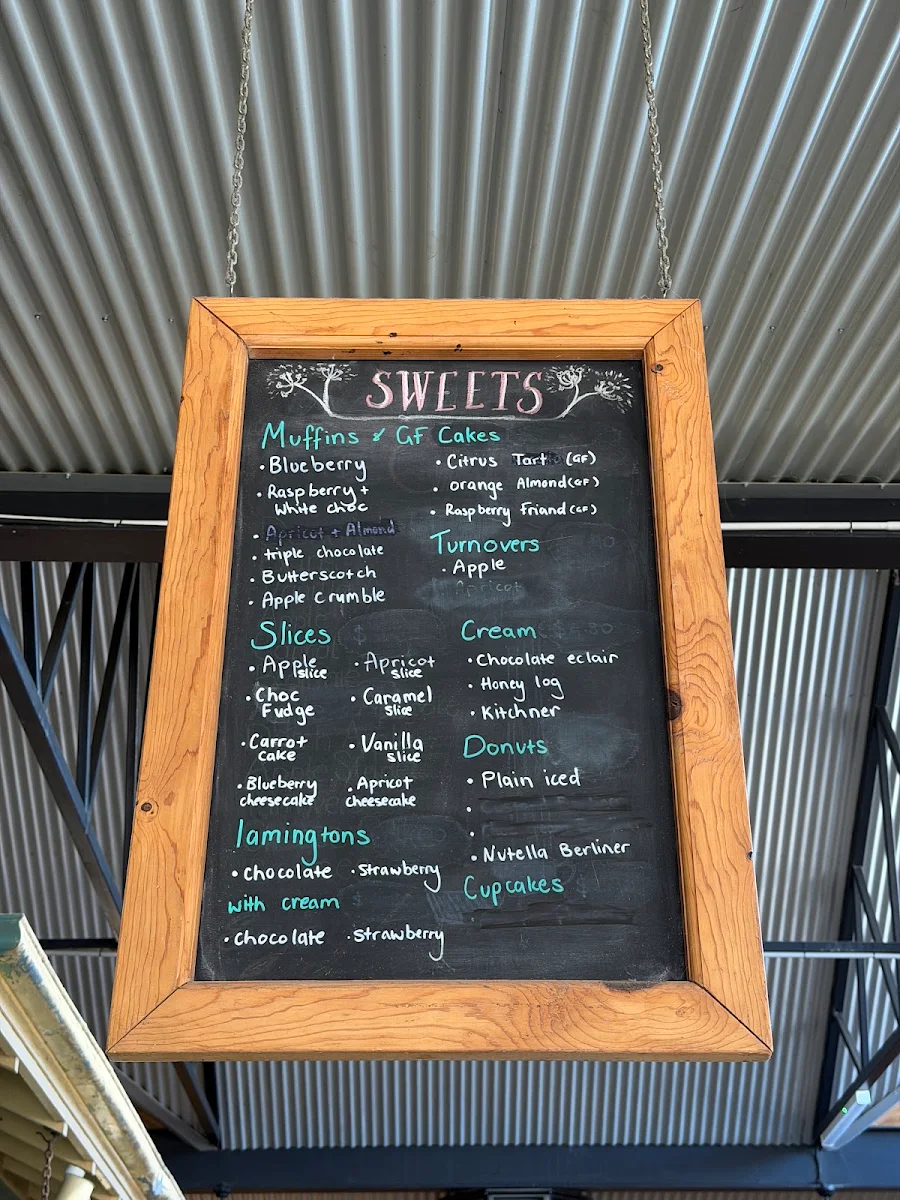 SWEETS
Muffins & GF Cakes
• Blueberry
• Raspberry +
White choc
• Apricot + Almond
• triple chocolate
• Butterscotch
• Apple Crumble
• Citrus Tart (GF)
• orange Almond (GF)
• Raspberry friand (GF)
Turnovers
• Apple
Apricot
Slices
• Apple slice
• Apricot slice
• Choc Fudge
• Caramel slice
• Carrot cake
• Vanilla slice
• Blueberry cheesecake
• Apricot cheesecake
lamingtons
• chocolate • strawberry
with cream
• chocolate • strawberry
Cream
• Chocolate eclair
• Honey log
• Kitchner
Donuts
• Plain iced
•
•
• Nutella Berliner
Cupcakes